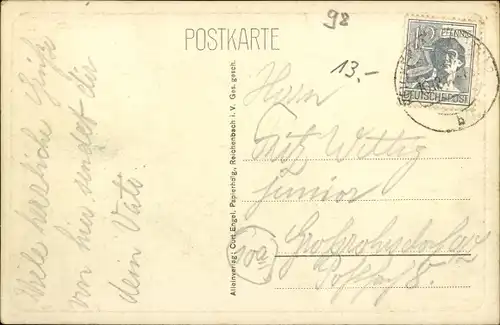 98
POSTKARTE
13.-
12 PFENNIG
DEUTSCHE POST
b
Viele herzliche Grüße
von hier sendet dir
dein Vati.
Alleinverlag: Curt Engel, Papierhdlg, Reichenbach i. V. Ges. gesch.
Herrn
Fritz Wittig
junior
Großröhrsdorf
10a